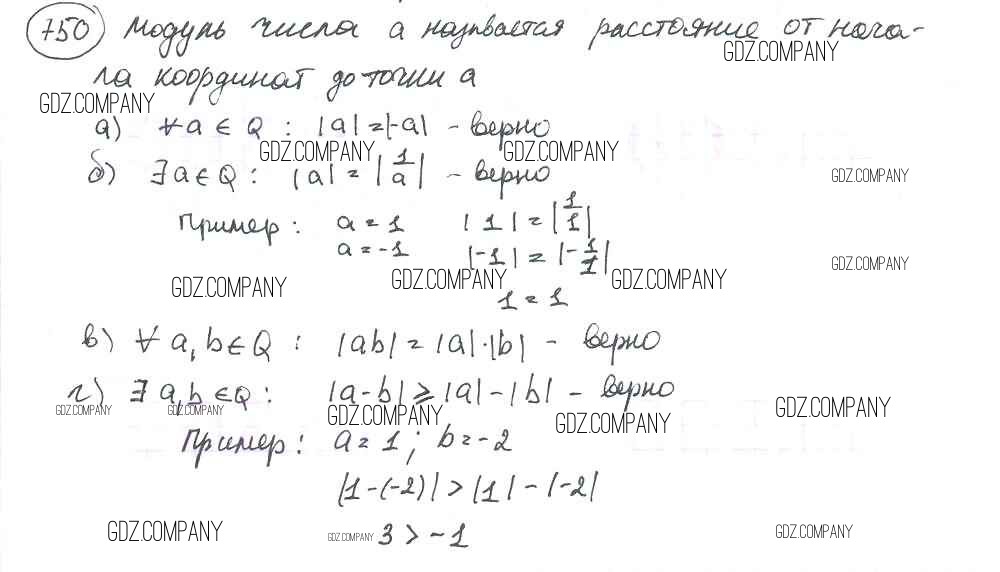 750 Модуль числа а называется расстояние от нача-
GDZ.COMPANY
ла координат до точки а
GDZ.COMPANY
а) ∀ a ∈ Q : |a| = |-a| - верно
GDZ.COMPANY GDZ.COMPANY
б) ∃ a ∈ Q : |a| = |1/a| - верно
GDZ.COMPANY
Пример: a = 1 |1| = |1/1|
a = -1 |-1| = |-1/1|
GDZ.COMPANY
GDZ.COMPANY GDZ.COMPANY GDZ.COMPANY
1 = 1
в) ∀ a, b ∈ Q : |ab| = |a|·|b| - верно
г) ∃ a, b ∈ Q : |a-b| ⩾ |a| - |b| - верно
GDZ.COMPANY GDZ.COMPANY GDZ.COMPANY GDZ.COMPANY GDZ.COMPANY
Пример: a = 1 ; b = -2
|1-(-2)| > |1| - |-2|
GDZ.COMPANY GDZ.COMPANY 3 > -1 GDZ.COMPANY